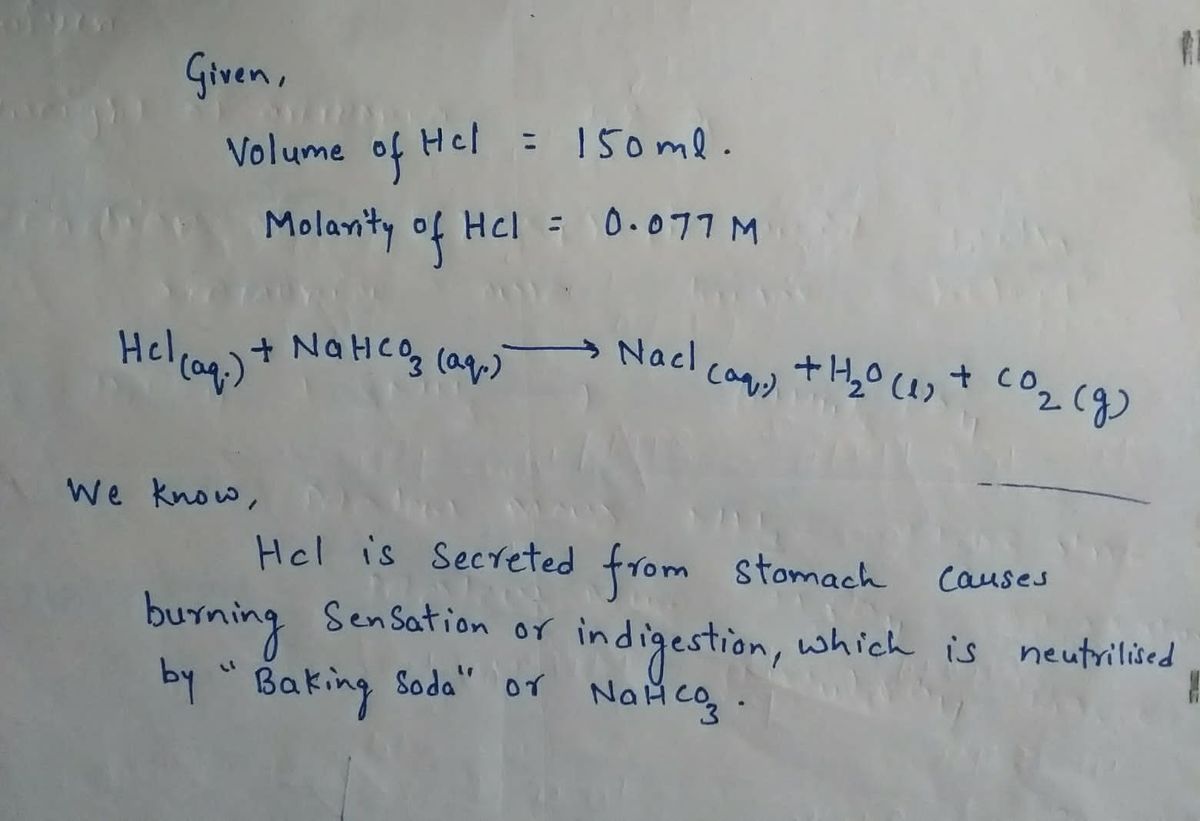 Given,
Volume of Hcl = 150 ml.
Molarity of HCl = 0.077 M
Hcl(aq.) + NaHCO3 (aq.) → Nacl (aq.) + H2O (l) + CO2 (g)
We know,
Hcl is Secreted from Stomach Causes
burning Sensation or indigestion, which is neutrilised
by "Baking Soda" or NaHCO3.